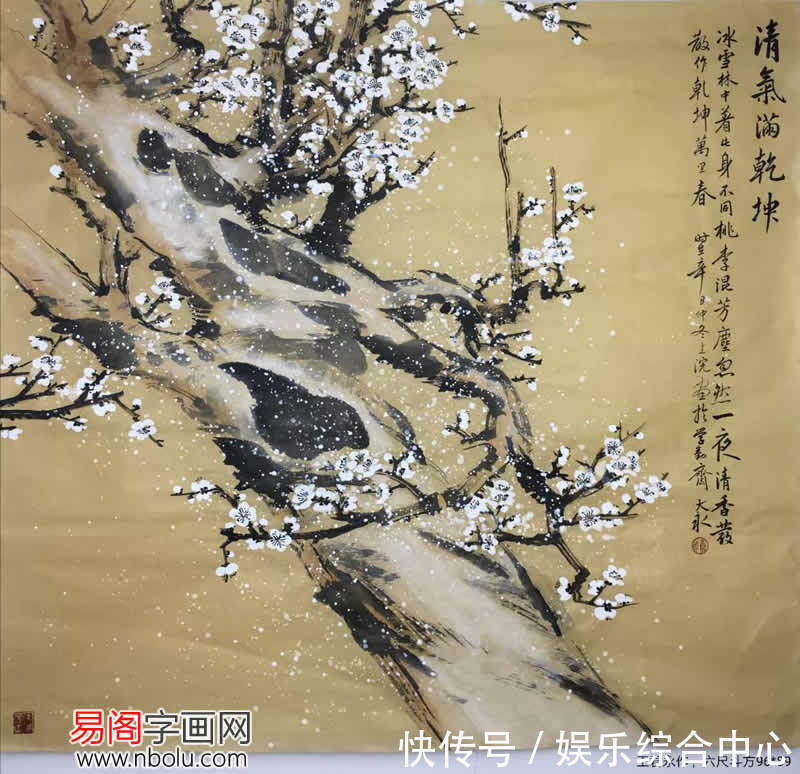 清氣滿乾坤
冰雪林中著此身不同桃李混芳塵忽然一夜清香發
散作乾坤萬里春 時在辛丑仲冬上浣畫於
齋大永
易阁字画网
www.nbolu.com
快传号 / 娱乐综合中心
六尺斗方96*99